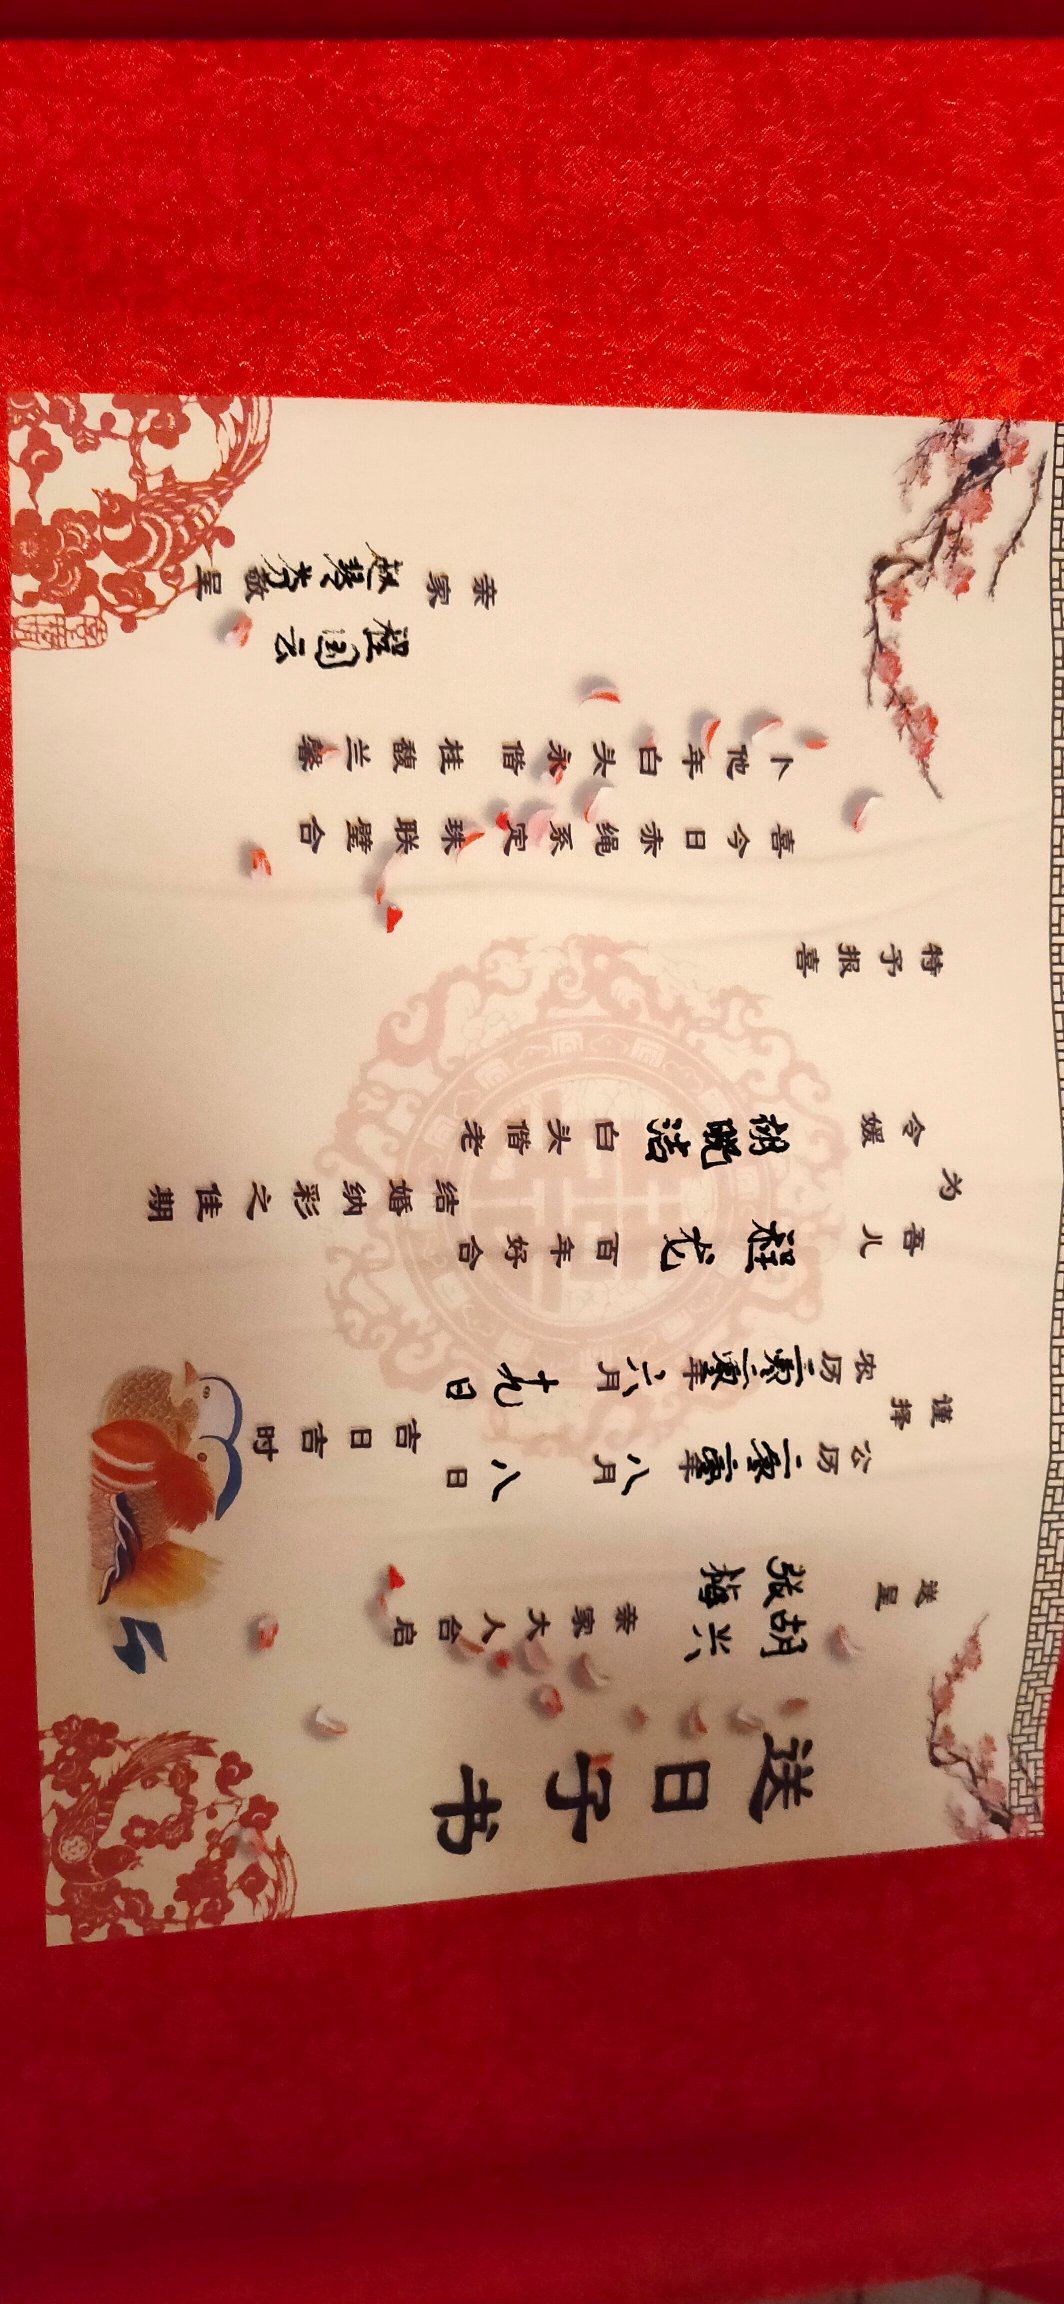 送日子书
送呈
胡兴
张梅
亲家大人台启
谨择
公历二零二零年八月八日
农历二零二零年六月十九日
吉日吉时
为
吾儿程龙百年好合
令媛胡晓洁白头偕老
结婚纳彩之佳期
特予报喜
喜今日赤绳系定珠联璧合
卜他年白头永偕桂馥兰馨
亲家
程国云
赵琴芳敬呈